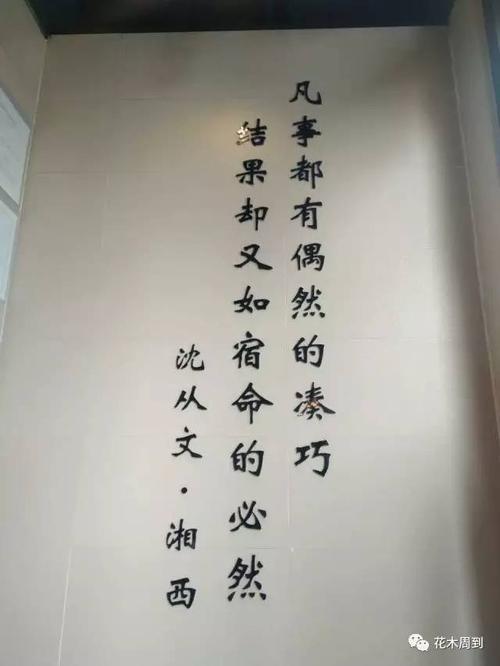 凡事都有偶然的凑巧
结果却又如宿命的必然
沈从文·湘西
花木周到